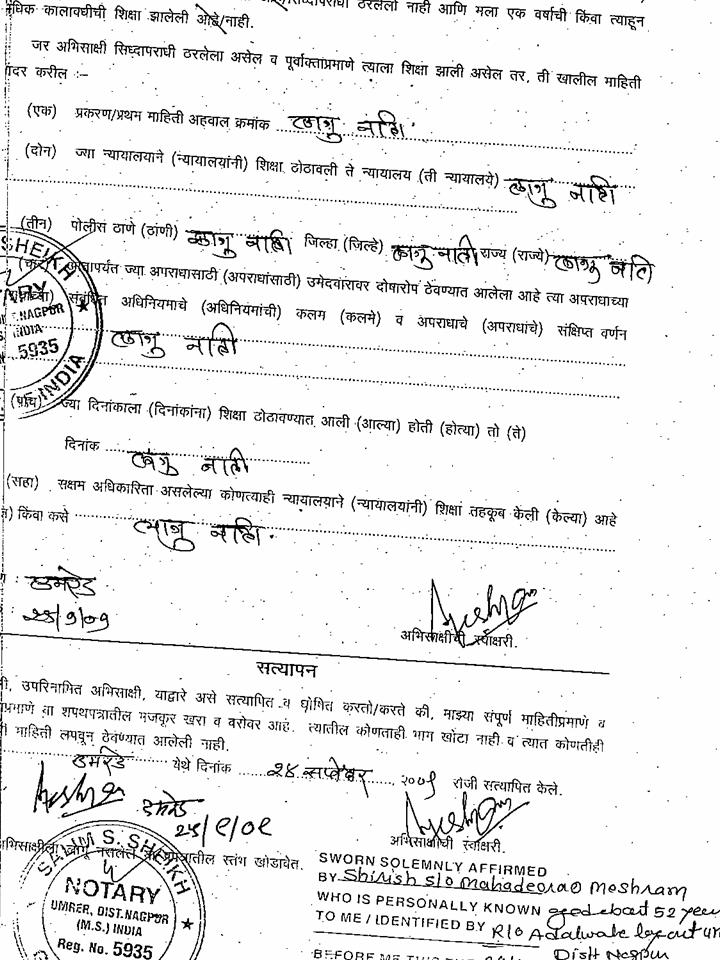 धिक कालावधीची शिक्षा झालेली आहे/नाही.
सिध्दापराधी ठरलेला नाही आणि मला एक वर्षाची किंवा त्याहून
जर अभिसाक्षी सिध्दापराधी ठरलेला असेल व पूर्वोक्ताप्रमाणे त्याला शिक्षा झाली असेल तर, ती खालील माहिती
सादर करील :-
(एक) प्रकरण/प्रथम माहिती अहवाल क्रमांक लागु नाही
(दोन) ज्या न्यायालयाने (न्यायालयांनी) शिक्षा ठोठावली ते न्यायालय (ती न्यायालये) लागु नाही
(तीन) पोलीस ठाणे (ठाणी) लागु नाही जिल्हा (जिल्हे) लागु नाही राज्य (राज्ये) लागु नाही
ज्या अपराधासाठी (अपराधांसाठी) उमेदवारावर दोषारोप ठेवण्यात आलेला आहे त्या अपराधाच्या
संबंधित अधिनियमाचे (अधिनियमांची) कलम (कलमे) व अपराधाचे (अपराधांचे) संक्षिप्त वर्णन
लागु नाही
(पाच) ज्या दिनांकाला (दिनांकांना) शिक्षा ठोठावण्यात आली (आल्या) होती (होत्या) तो (ते)
दिनांक लागु नाही
(सहा) सक्षम अधिकारिता असलेल्या कोणत्याही न्यायालयाने (न्यायालयांनी) शिक्षा तहकूब केली (केल्या) आहे
किंवा कसे लागु नाही.
उमरेड
अभिसाक्षीची स्वाक्षरी.
सत्यापन
मी, उपरिनामित अभिसाक्षी, याद्वारे असे सत्यापित व घोषित करतो/करते की, माझ्या संपूर्ण माहितीप्रमाणे व
प्रमाणे या शपथपत्रातील मजकूर खरा व बरोबर आहे. त्यातील कोणताही भाग खोटा नाही व त्यात कोणतीही
माहिती लपवून ठेवण्यात आलेली नाही.
उमरेड येथे दिनांक २४ सप्टेंबर, २००९ रोजी सत्यापित केले.
उमरेड
अभिसाक्षीची स्वाक्षरी.
स्तंभ खोडावेत.
SALIM S. SHEIKH
NOTARY
UMRER, DIST.NAGPUR
(M.S.) INDIA
Reg. No. 5935
SWORN SOLEMNLY AFFIRMED
BY Shirish s/o Mahadeorao Meshram
WHO IS PERSONALLY KNOWN aged about 52 years
TO ME / IDENTIFIED BY R/o Adalwale layout
Distt Nagpur
SHEIKH
NAGPUR
INDIA
5935
INDIA